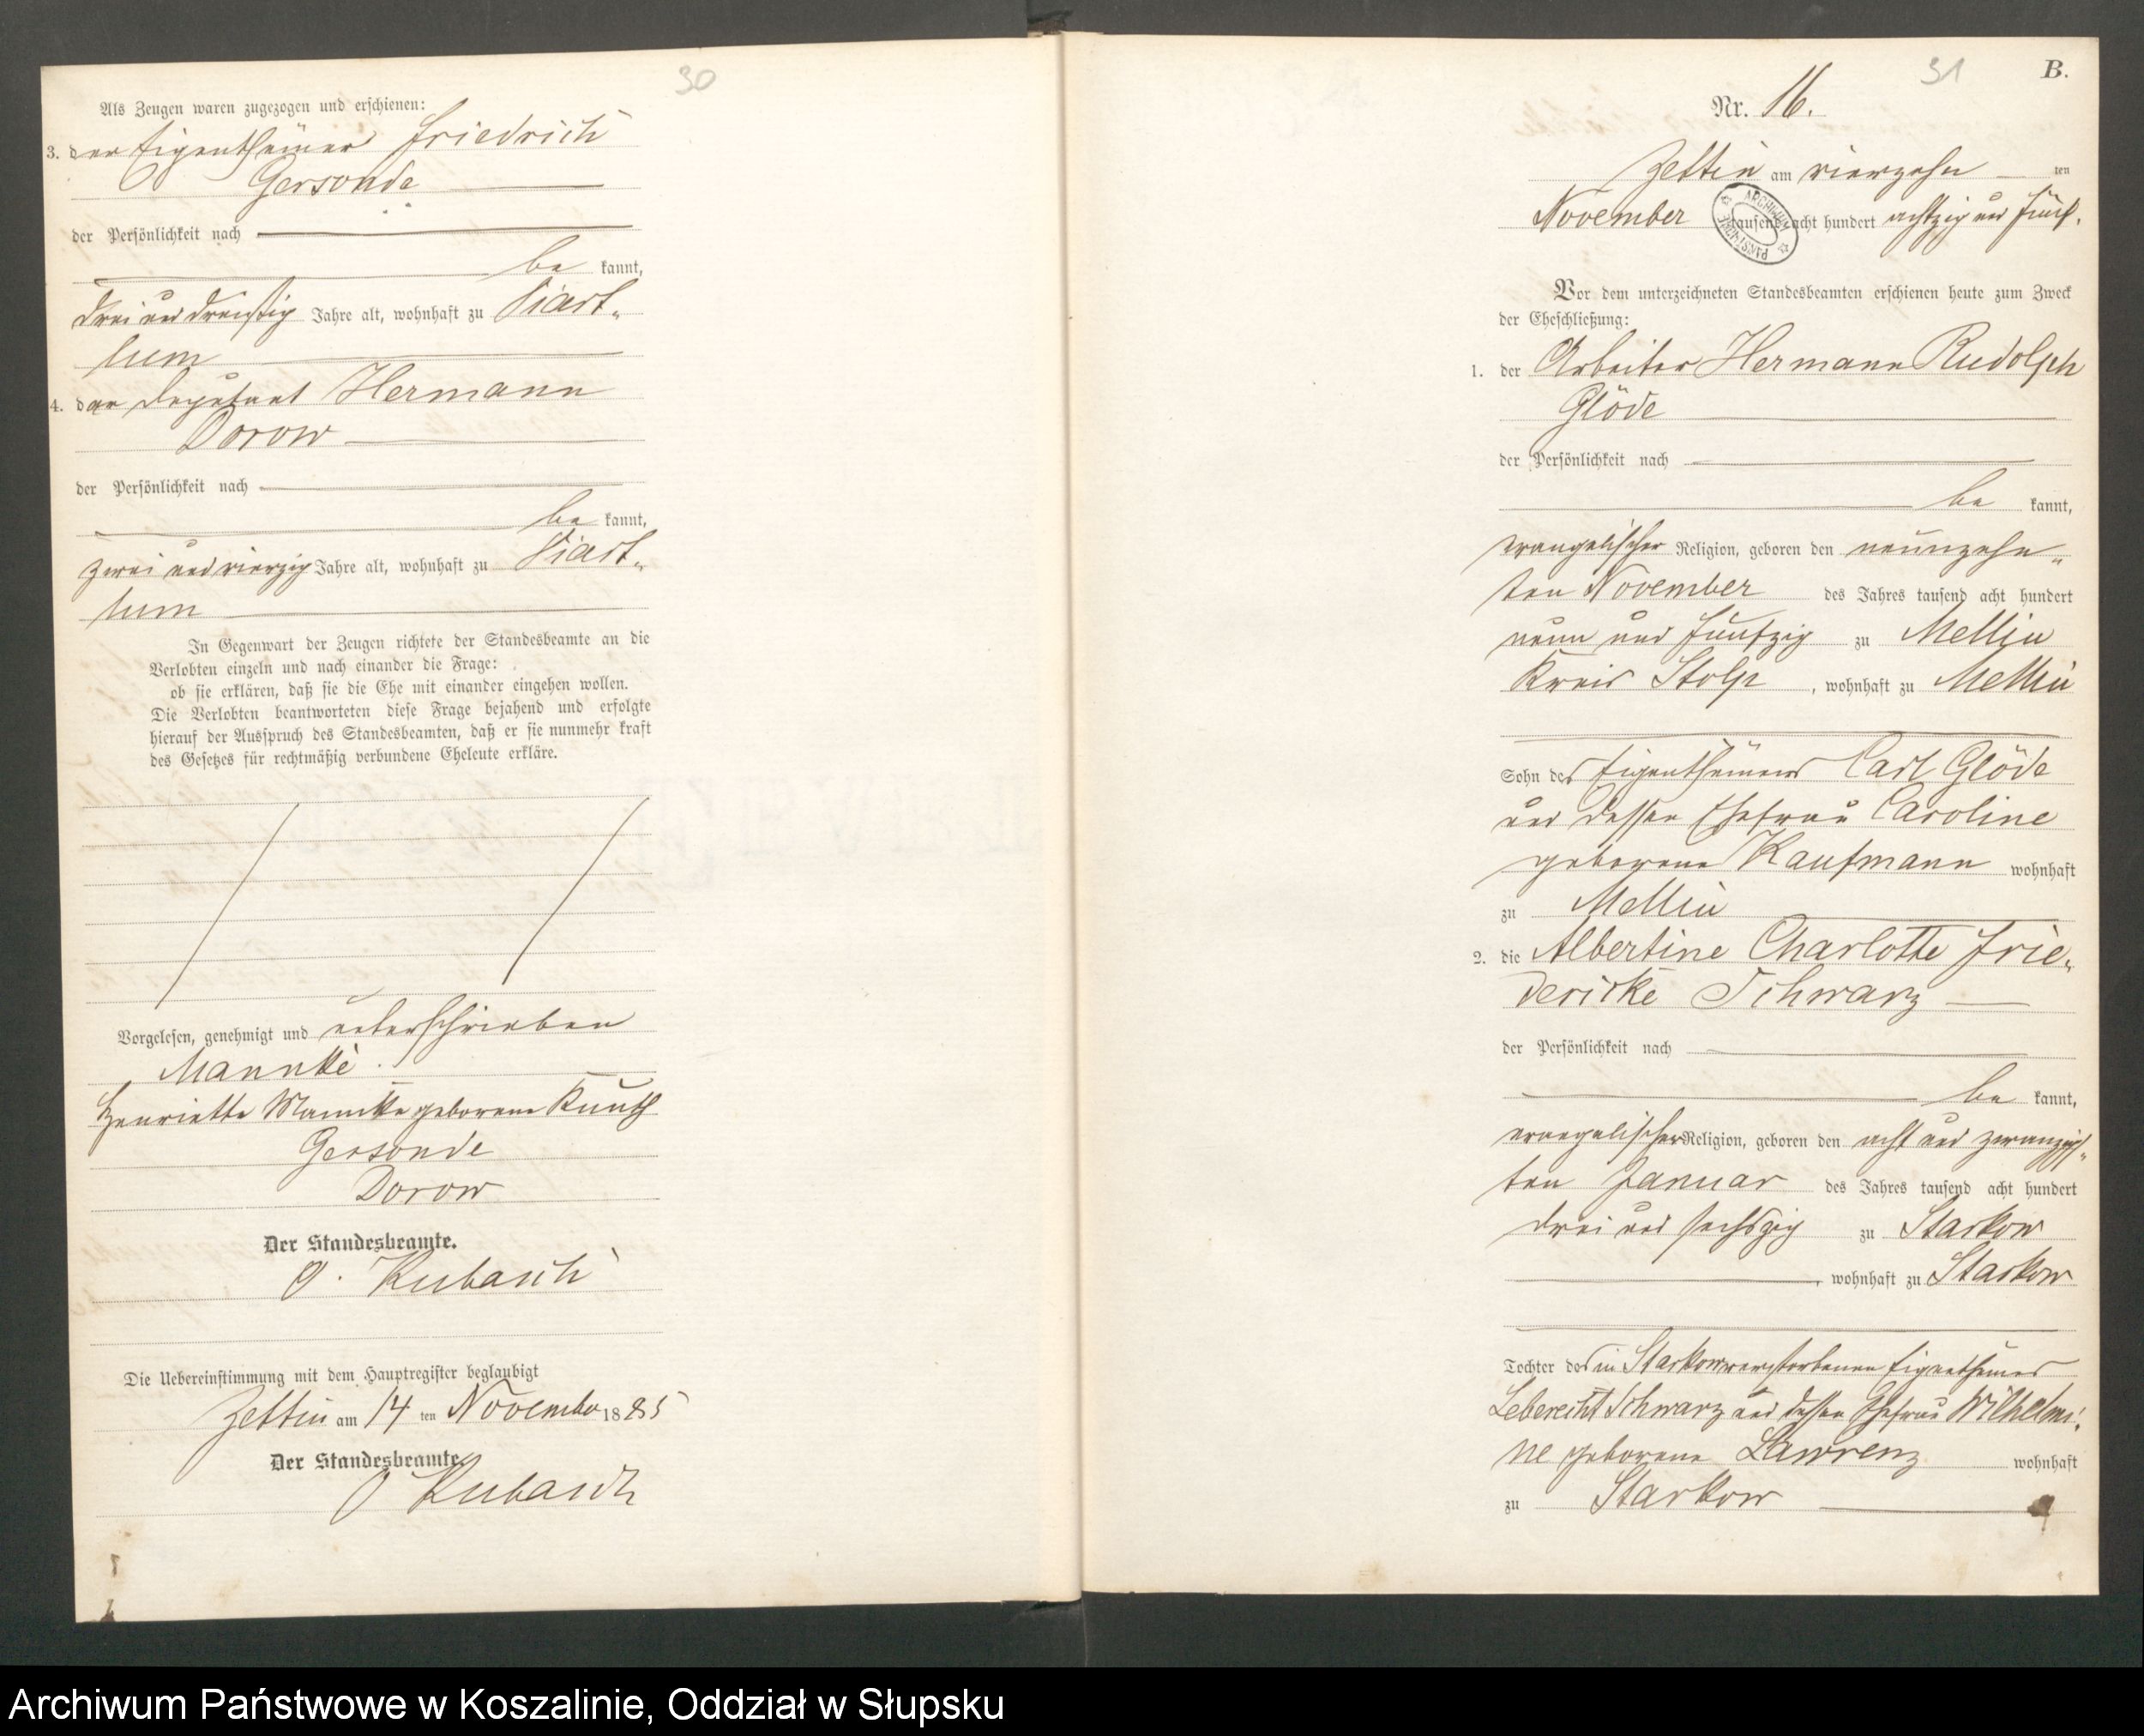 30
Als Zeugen waren zugezogen und erschienen:
3. der Eigenthümer Friedrich
Gersonde
der Persönlichkeit nach
be kannt,
drei und dreißig Jahre alt, wohnhaft zu Viart-
lum
4. der Deputant Hermann
Dorow
der Persönlichkeit nach
be kannt,
zwei und vierzig Jahre alt, wohnhaft zu Viart-
lum
In Gegenwart der Zeugen richtete der Standesbeamte an die
Verlobten einzeln und nach einander die Frage:
ob sie erklären, daß sie die Ehe mit einander eingehen wollen.
Die Verlobten beantworteten diese Frage bejahend und erfolgte
hierauf der Ausspruch des Standesbeamten, daß er sie nunmehr kraft
des Gesetzes für rechtmäßig verbundene Eheleute erkläre.
Vorgelesen, genehmigt und unterschrieben
Manntke.
Henriette Manntke geborene Kuuth
Gersonde
Dorow
Der Standesbeamte.
O. Kubasch
Die Uebereinstimmung mit dem Hauptregister beglaubigt
Zettin am 14 ten November 1885
Der Standesbeamte.
O Kubasch
31
B.
Nr. 16.
Zettin am vierzehn ten
November tausend acht hundert achtzig und fünf.
ARCHIWUM PAŃSTWOWE
Vor dem unterzeichneten Standesbeamten erschienen heute zum Zweck
der Eheschließung:
1. der Arbeiter Hermann Rudolph
Glöde
der Persönlichkeit nach
be kannt,
evangelischer Religion, geboren den neunzehn-
ten November des Jahres tausend acht hundert
neun und fünfzig zu Mellin
Kreis Stolp, wohnhaft zu Mellin
Sohn des Eigenthümers Carl Glöde
und dessen Ehefrau Caroline
geborene Kaufmann wohnhaft
zu Mellin
2. die Albertine Charlotte Frie-
dericke Schwarz
der Persönlichkeit nach
be kannt,
evangelischer Religion, geboren den acht und zwanzigs-
ten Januar des Jahres tausend acht hundert
drei und sechszig zu Starkow
, wohnhaft zu Starkow
Tochter des in Starkow verstorbenen Eigenthümers
Leberecht Schwarz und dessen Ehefrau Wilhelmi-
ne geborene Lawrenz wohnhaft
zu Starkow
Archiwum Państwowe w Koszalinie, Oddział w Słupsku